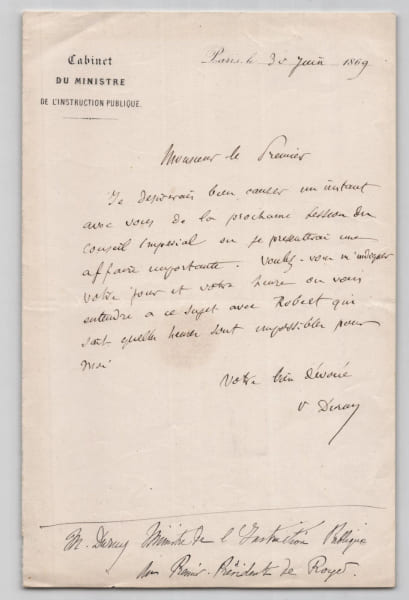 Cabinet
DU MINISTRE
DE L'INSTRUCTION PUBLIQUE.
Paris le 30 Juin 1869
Monsieur le Premier
Je désirerais bien causer un instant
avec vous de la prochaine session du
Conseil Impérial où se présenterait une
affaire importante. Voulez-vous m'indiquer
votre jour et votre heure ou vous
entendre à ce sujet avec Robert qui
sait quelles heures sont impossibles pour
moi
Votre bien dévoué
V Duruy
M. Duruy Ministre de l'Instruction Publique
au Premier-Président de Royer.